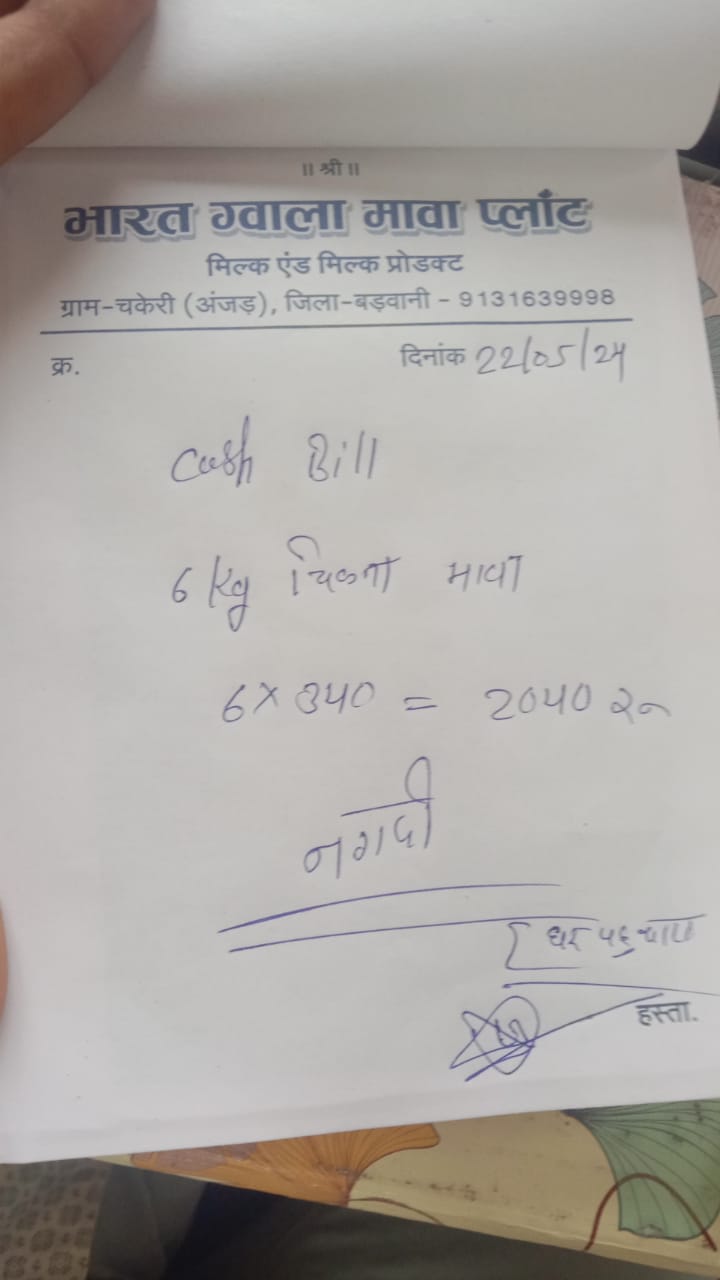 ॥ श्री ॥
भारत ग्वाला मावा प्लांट
मिल्क एंड मिल्क प्रोडक्ट
ग्राम-चकेरी (अंजड़), जिला-बड़वानी - 9131639998
क्र. दिनांक 22/05/24
Cash Bill
6 Kg चिकना मावा
6 × 340 = 2040 रु
नगदी
घर पहुचाया
हस्ता.